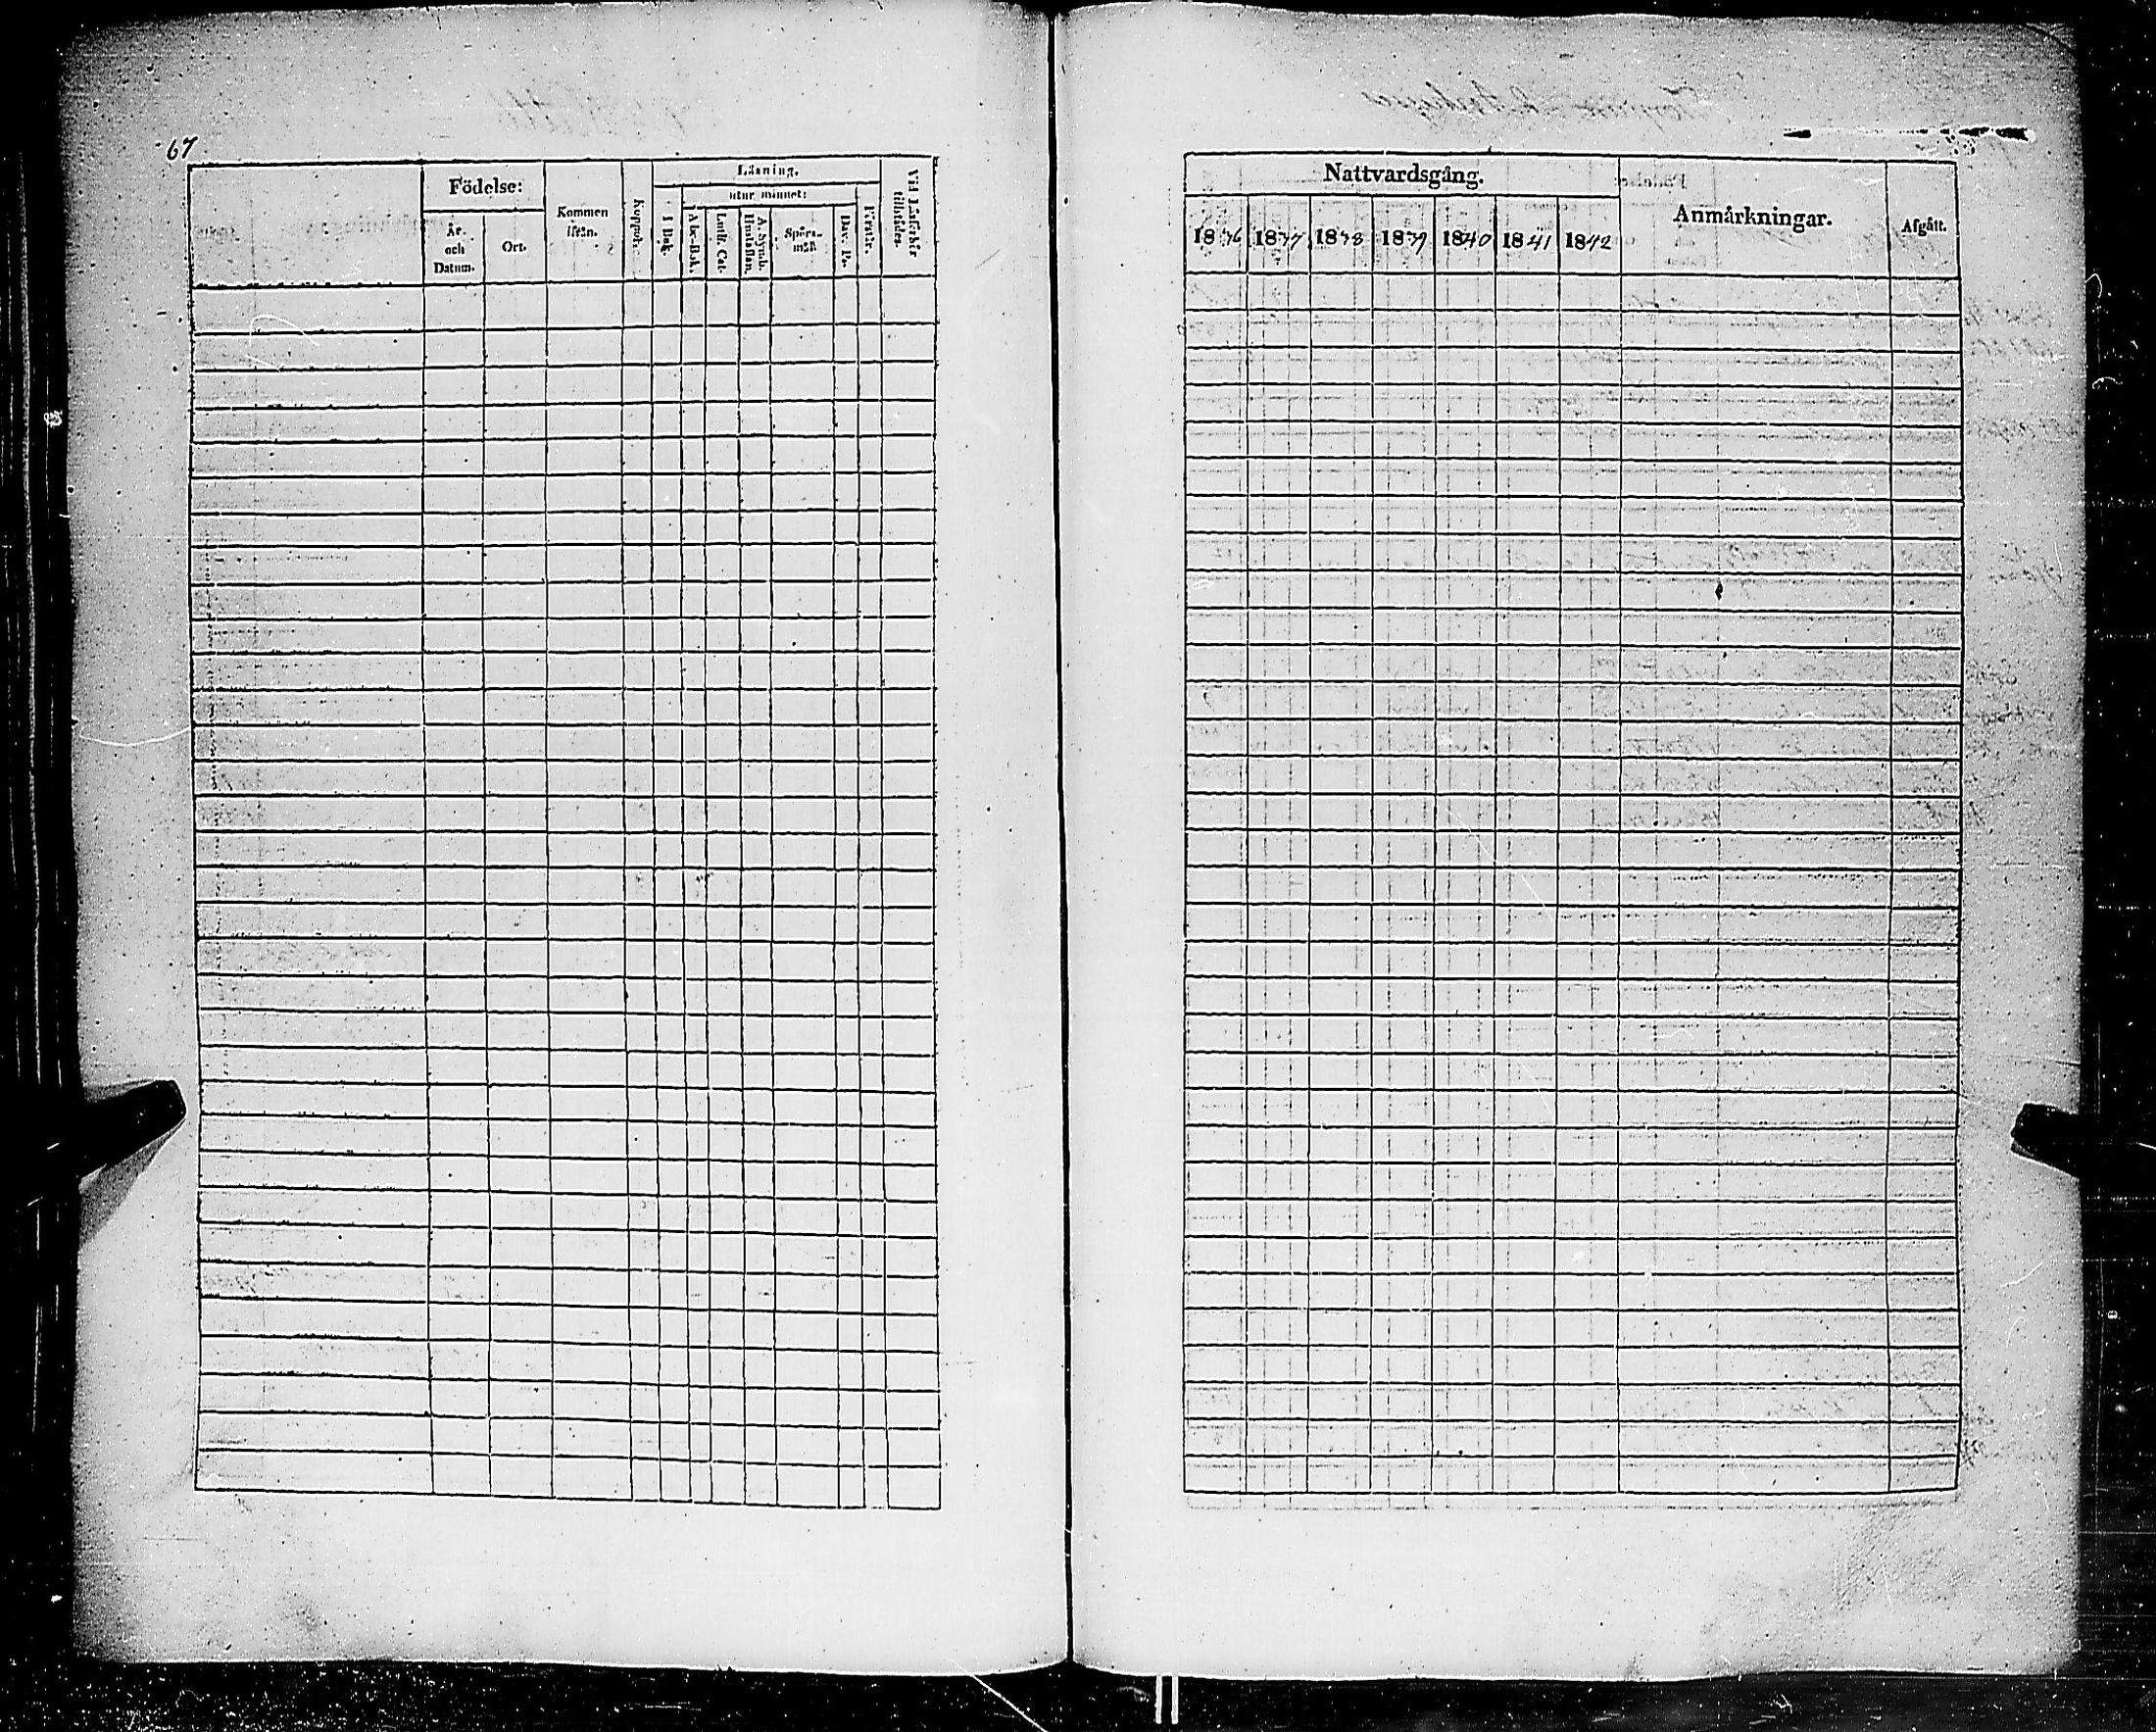 67
Födelse:
År. och Datum.
Ort.
Kommen ifrån.
Koppor.
Läsning.
utur minnet:
I Bok.
Abc-Bok.
Luth. Cat.
A. Symb. Hustaflan.
Spörs-mål.
Dav. Ps.
Förstår.
Vid Läseförhör tillstädes.
Nattvardsgång.
1836 1837 1838 1839 1840 1841 1842
Anmärkningar.
Afgått.